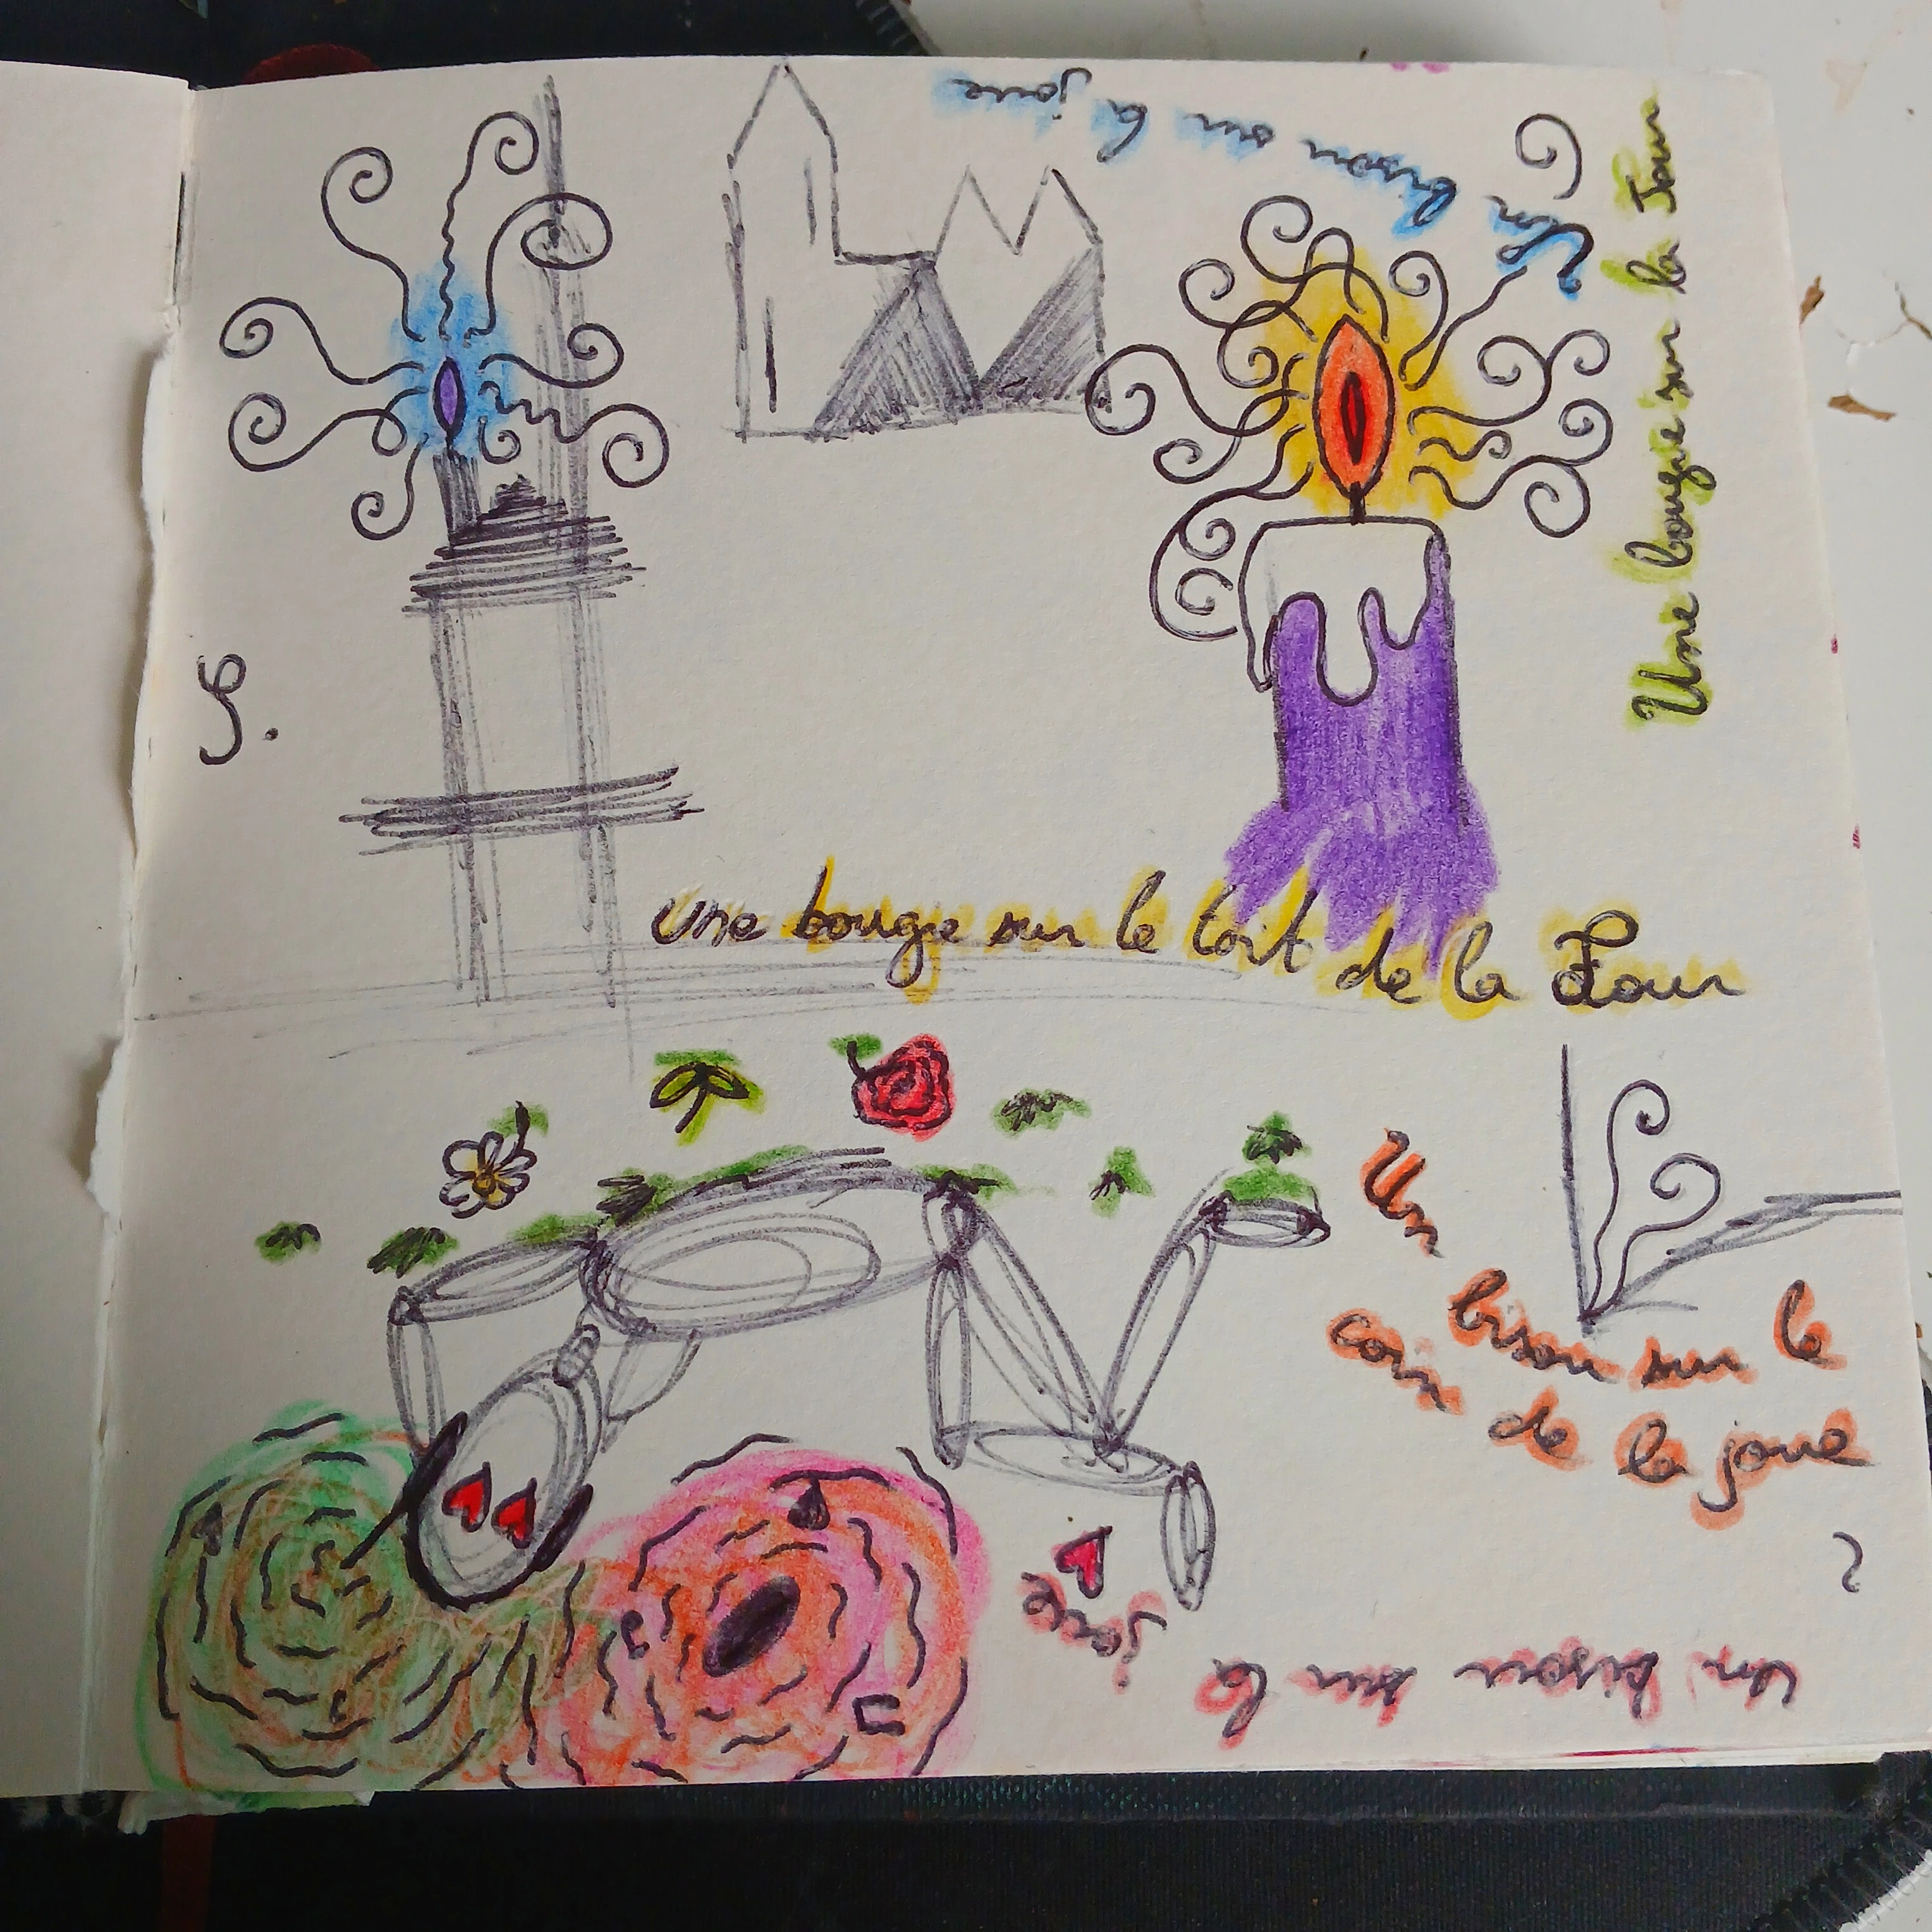 Un bisou sur la joue
Une bougie sur la Tour
S.
une bougie sur le toit de la Tour
Un bisou sur le
coin de la joue
?
un bisou sur la
joue